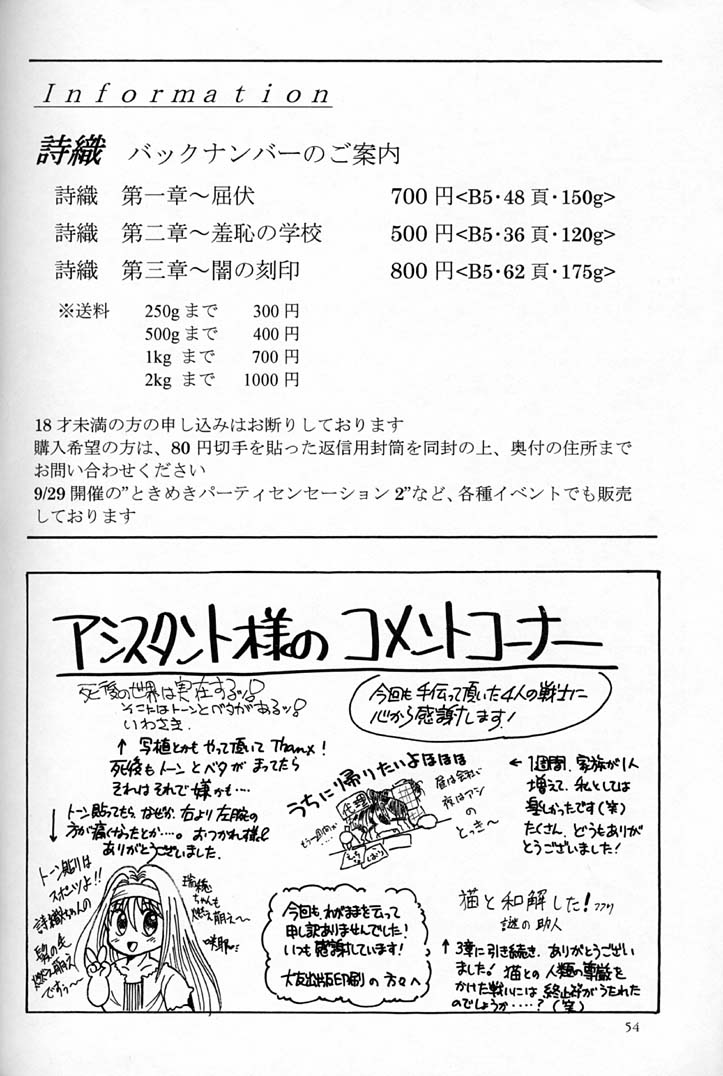 Information
詩織 バックナンバーのご案内
詩織 第一章～屈伏 700円<B5・48頁・150g>
詩織 第二章～羞恥の学校 500円<B5・36頁・120g>
詩織 第三章～闇の刻印 800円<B5・62頁・175g>
※送料 250gまで 300円
500gまで 400円
1kg まで 700円
2kg まで 1000円
18才未満の方の申し込みはお断りしております
購入希望の方は、80円切手を貼った返信用封筒を同封の上、奥付の住所まで
お問い合わせください
9/29開催の"ときめきパーティセンセーション2"など、各種イベントでも販売
しております
アシスタント様の コメントコーナー
死後の世界は実在するッ!
そこにはトーンとベタがあるッ!
いわさき
今回も手伝って頂いた4人の戦士に
心から感謝します!
↑ 写植とかも やって頂いて Thanx!
死後もトーンとベタが まってたら
それは それで 嫌かも…
うちに帰りたいよほほほ
代理
昼は会社で
夜はアシ
の
とっき～
← 1週間、家族が1人
増えて、私としては
楽しかったです(笑)
たくさん、どうもありが
とうございました!
↓ トーン貼ってもら、なぜか、右より左腕の
方が痛くなったとか…。おつかれ様&
ありがとうございました。
トーン貼りは
スポーツよ!!
詩織ちゃんの
髪の毛
燃え萌え
ですぅ～
瑞穂
ちゃんも
燃え萌え～
咲耶
今回も、わがままを云って
申し訳ありませんでした!
いつも感謝しています!
大友出版印刷の方々へ
猫と和解した! フフリ
謎の助人
↑ 3章に引き続き、ありがとうござい
ました! 猫との 人類の尊厳を
かけた戦いには 終止符がうたれた
のでしょうか…? (笑)
54